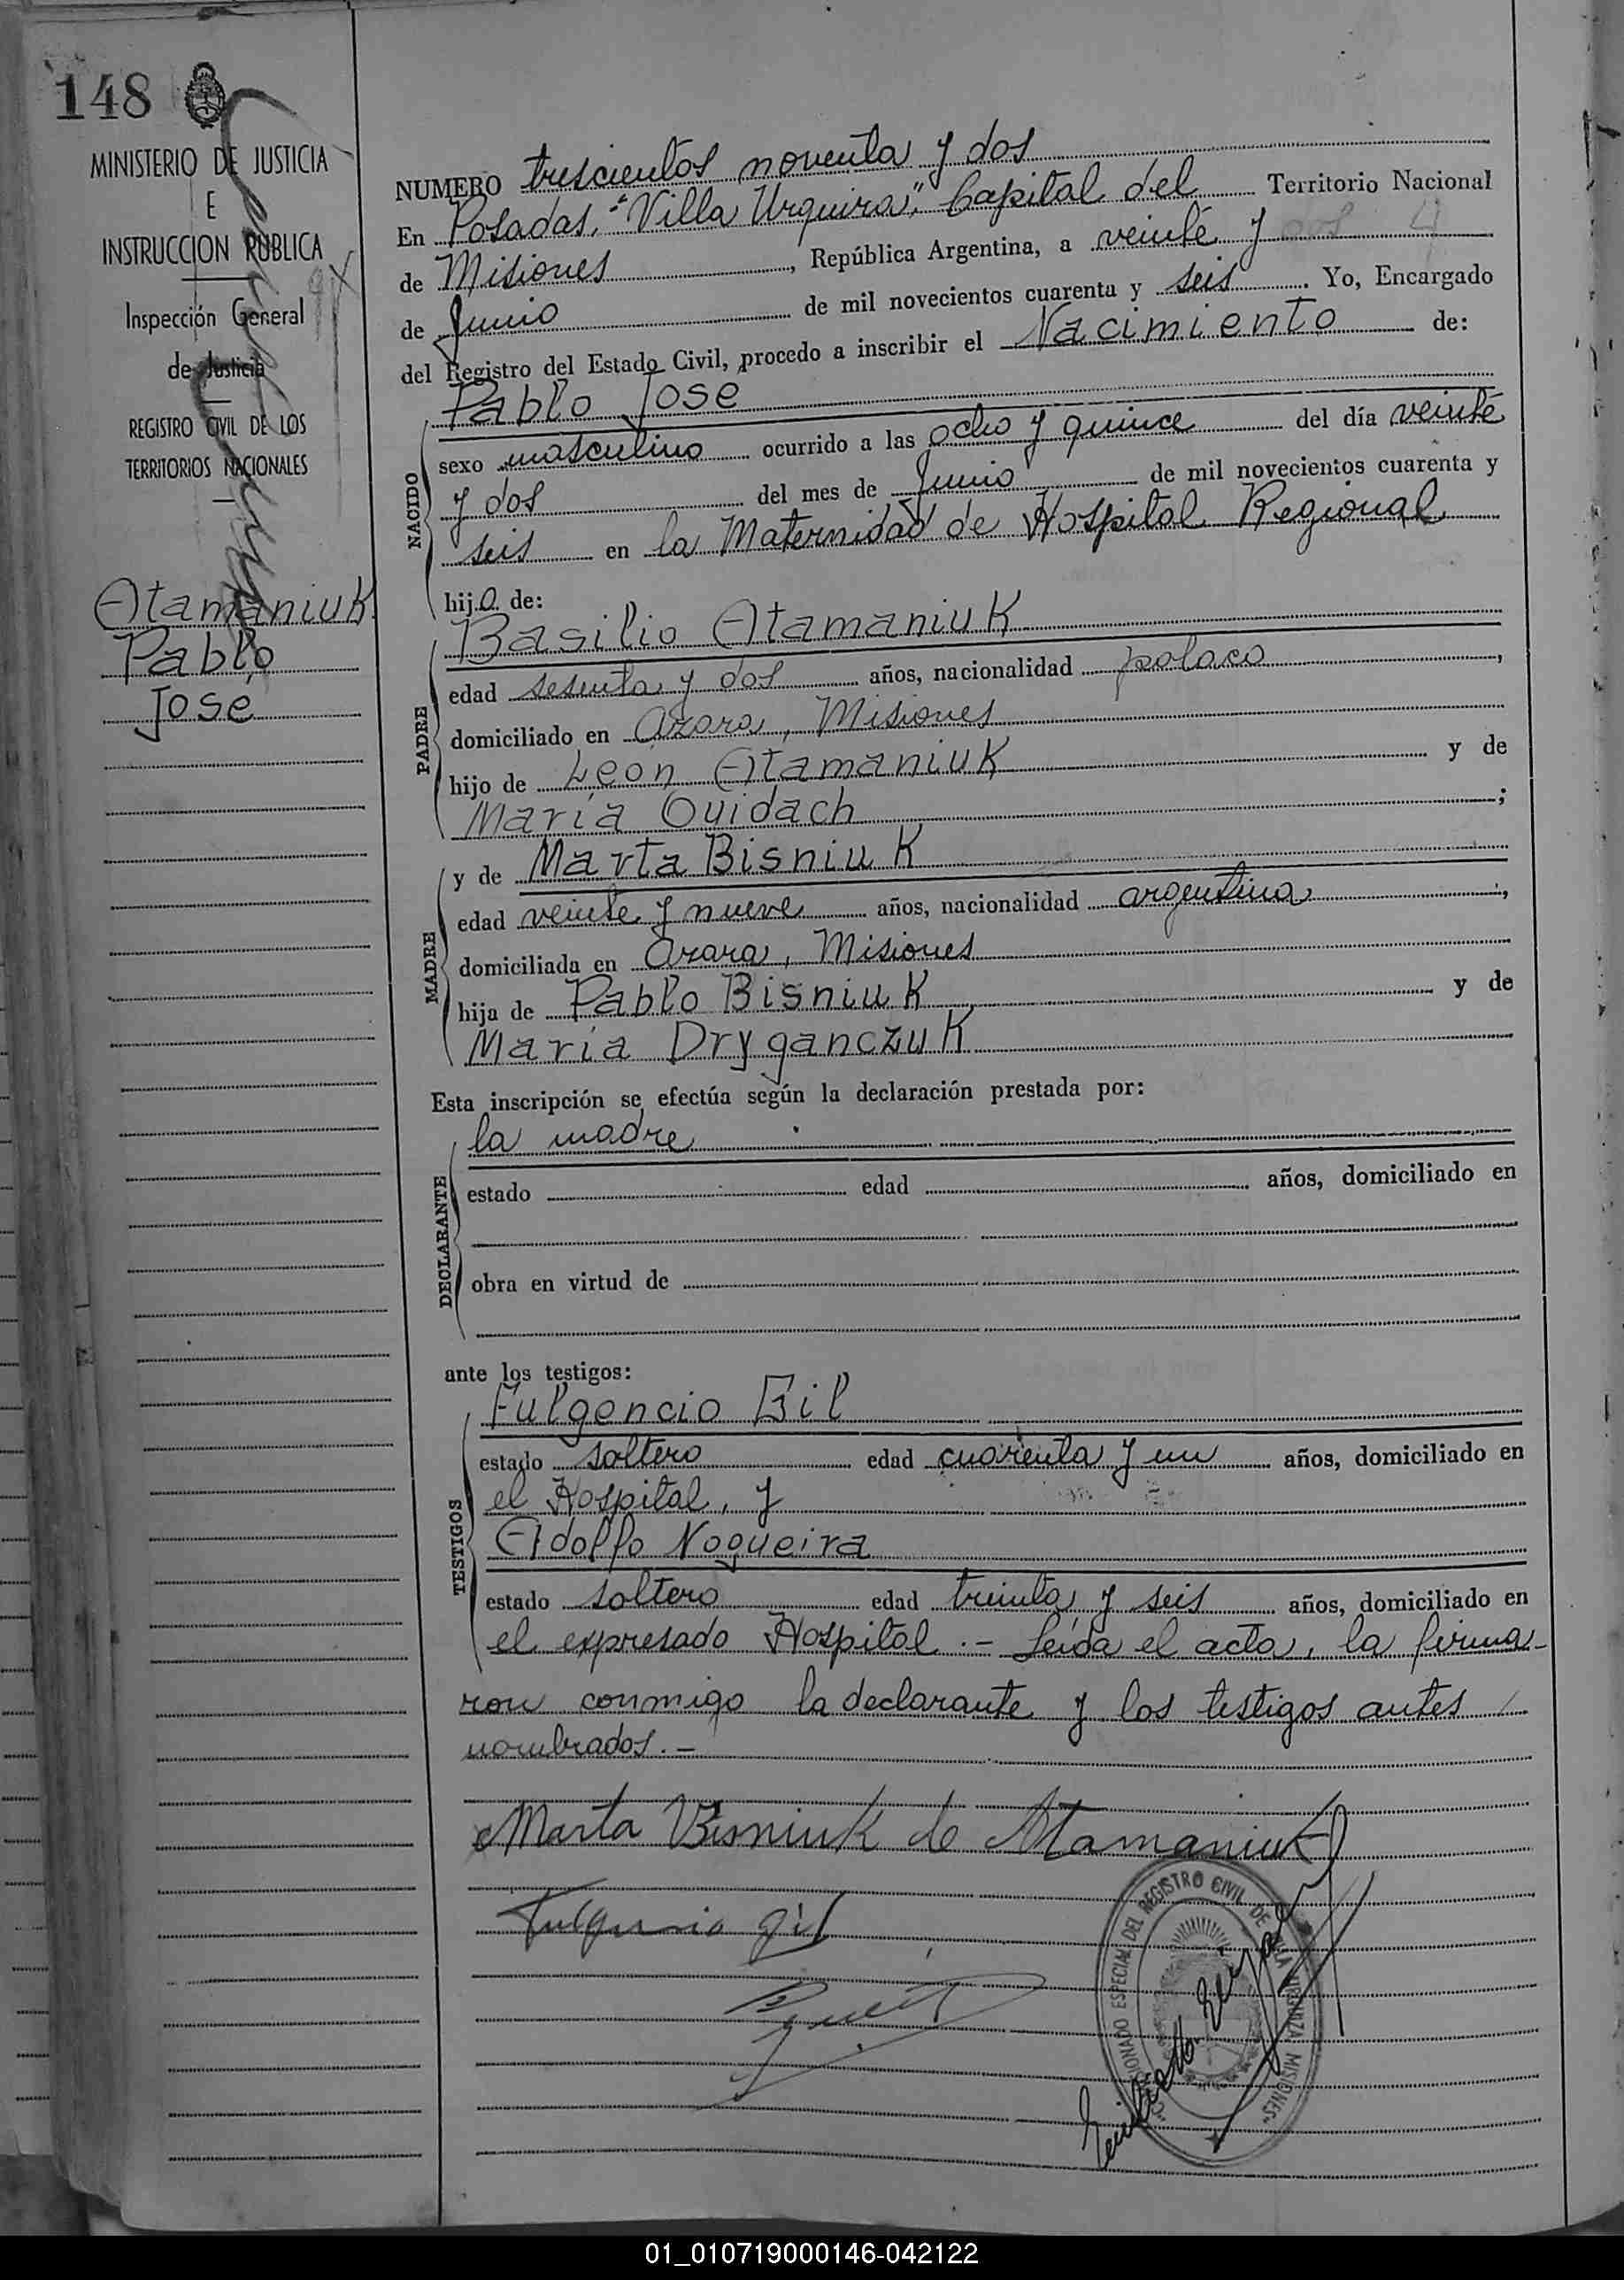 148
MINISTERIO DE JUSTICIA
E
INSTRUCCION PUBLICA
Inspección General
de Justicia
REGISTRO CIVIL DE LOS
TERRITORIOS NACIONALES
Atamaniuk
Pablo
José
NUMERO trescientos noventa y dos
En Posadas, "Villa Urquiza", Capital del Territorio Nacional
de Misiones, República Argentina, a veinte y
de Junio de mil novecientos cuarenta y seis. Yo, Encargado
del Registro del Estado Civil, procedo a inscribir el Nacimiento de:
NACIDO
Pablo José
sexo masculino ocurrido a las ocho y quince del día veinte
y dos del mes de Junio de mil novecientos cuarenta y
seis en la Maternidad de Hospital Regional
hijo de:
PADRE
Basilio Atamaniuk
edad sesenta y dos años, nacionalidad polaco,
domiciliado en Azara, Misiones
hijo de León Atamaniuk y de
María Ouidach;
MADRE
y de Marta Bisniuk
edad veinte y nueve años, nacionalidad argentina,
domiciliada en Azara, Misiones
hija de Pablo Bisniuk y de
María Dryganczuk
Esta inscripción se efectúa según la declaración prestada por:
DECLARANTE
la madre
estado edad años, domiciliado en
obra en virtud de
ante los testigos:
TESTIGOS
Fulgencio Gil
estado soltero edad cuarenta y un años, domiciliado en
el Hospital, y
Adolfo Nogueira
estado soltero edad treinta y seis años, domiciliado en
el expresado Hospital.- Leída el acta, la firma-
ron conmigo la declarante y los testigos antes
nombrados.-
Marta Bisniuk de Atamaniuk
Fulgencio Gil
ESPECIAL DEL REGISTRO CIVIL DE MISIONES
01_010719000146-042122